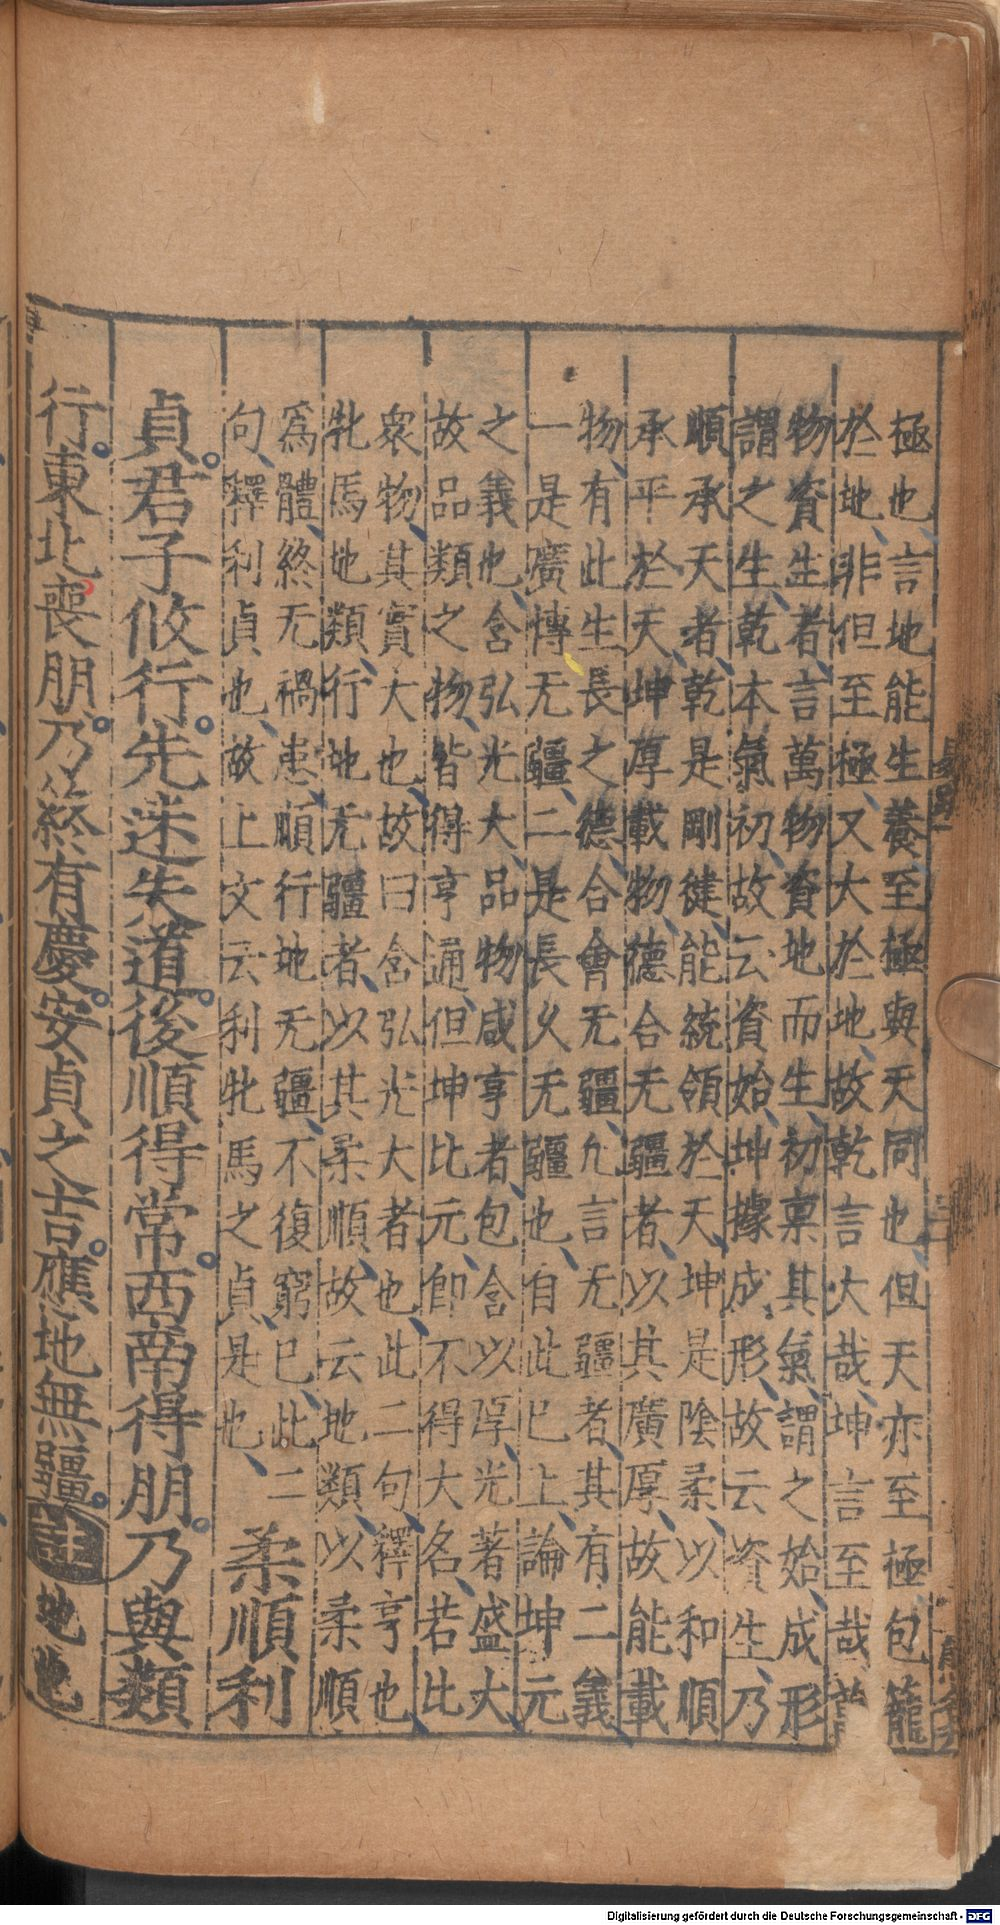 極也言地能生養至極與天同也但天亦至極包籠
於地非但至極又大於地故乾言大哉坤言至哉
物資生者言萬物資地而生初稟其氣謂之始成形
謂之生乾本氣初故云資始坤據成形故云資生乃
順承天者乾是剛健能統領於天坤是陰柔以和順
承平於天坤厚載物德合无疆者以其廣厚故能載
物有此生長之德合會无疆凢言无疆者其有二義
一是廣慱无疆二是長乆无疆也自此已上論坤元
之義也含弘光大品物咸亨者包含以厚光著盛大
故品類之物皆得亨通但坤比元即不得大名若比
衆物其實大也故曰含弘光大者也此二句釋亨也
牝馬地類行地无疆者以其柔順故云地類以柔順
爲體終无禍患順行地无疆不復窮已此二
句釋利貞也故上文云利牝馬之貞是也
柔順利
貞君子攸行先迷失道後順得常西南得朋乃與類
行東北喪朋乃終有慶安貞之吉應地無疆註地也
Digitalisierung gefördert durch die Deutsche Forschungsgemeinschaft - DFG